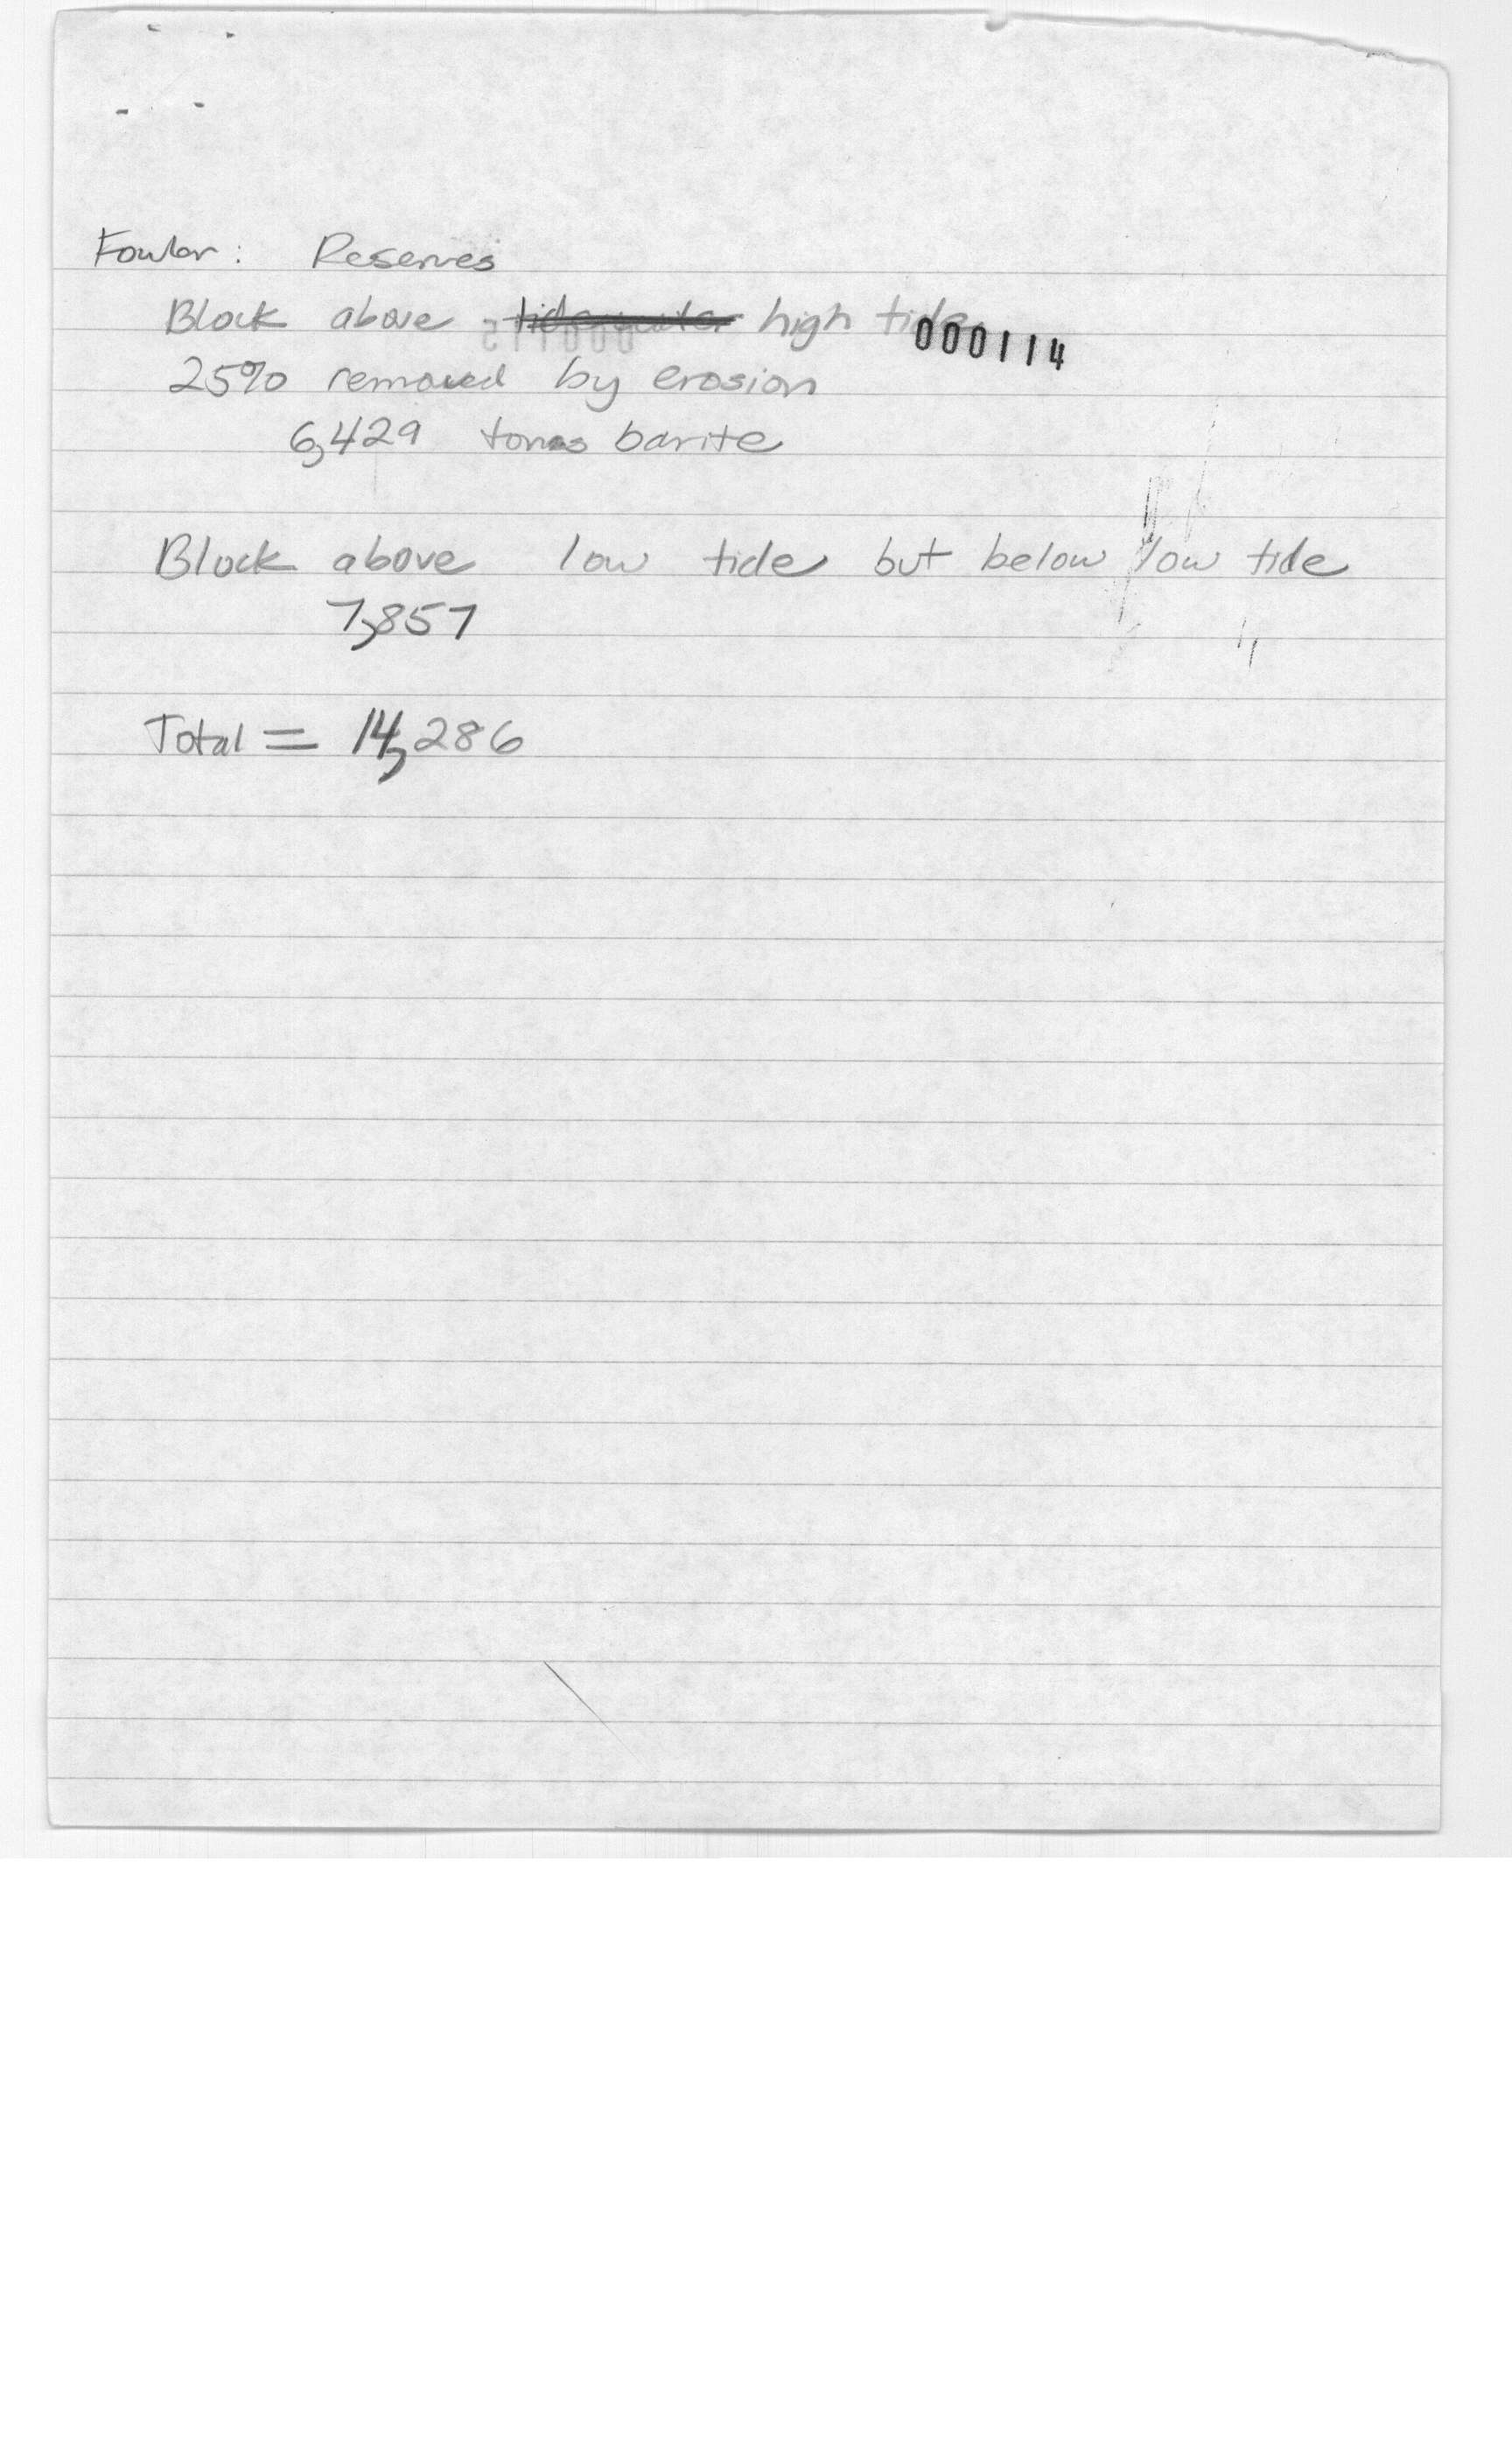 Fowler: Reserves
Block above tidewater high tide
000114
25% removed by erosion
6,429 tons barite
Block above low tide but below low tide
7,857
Total = 14,286